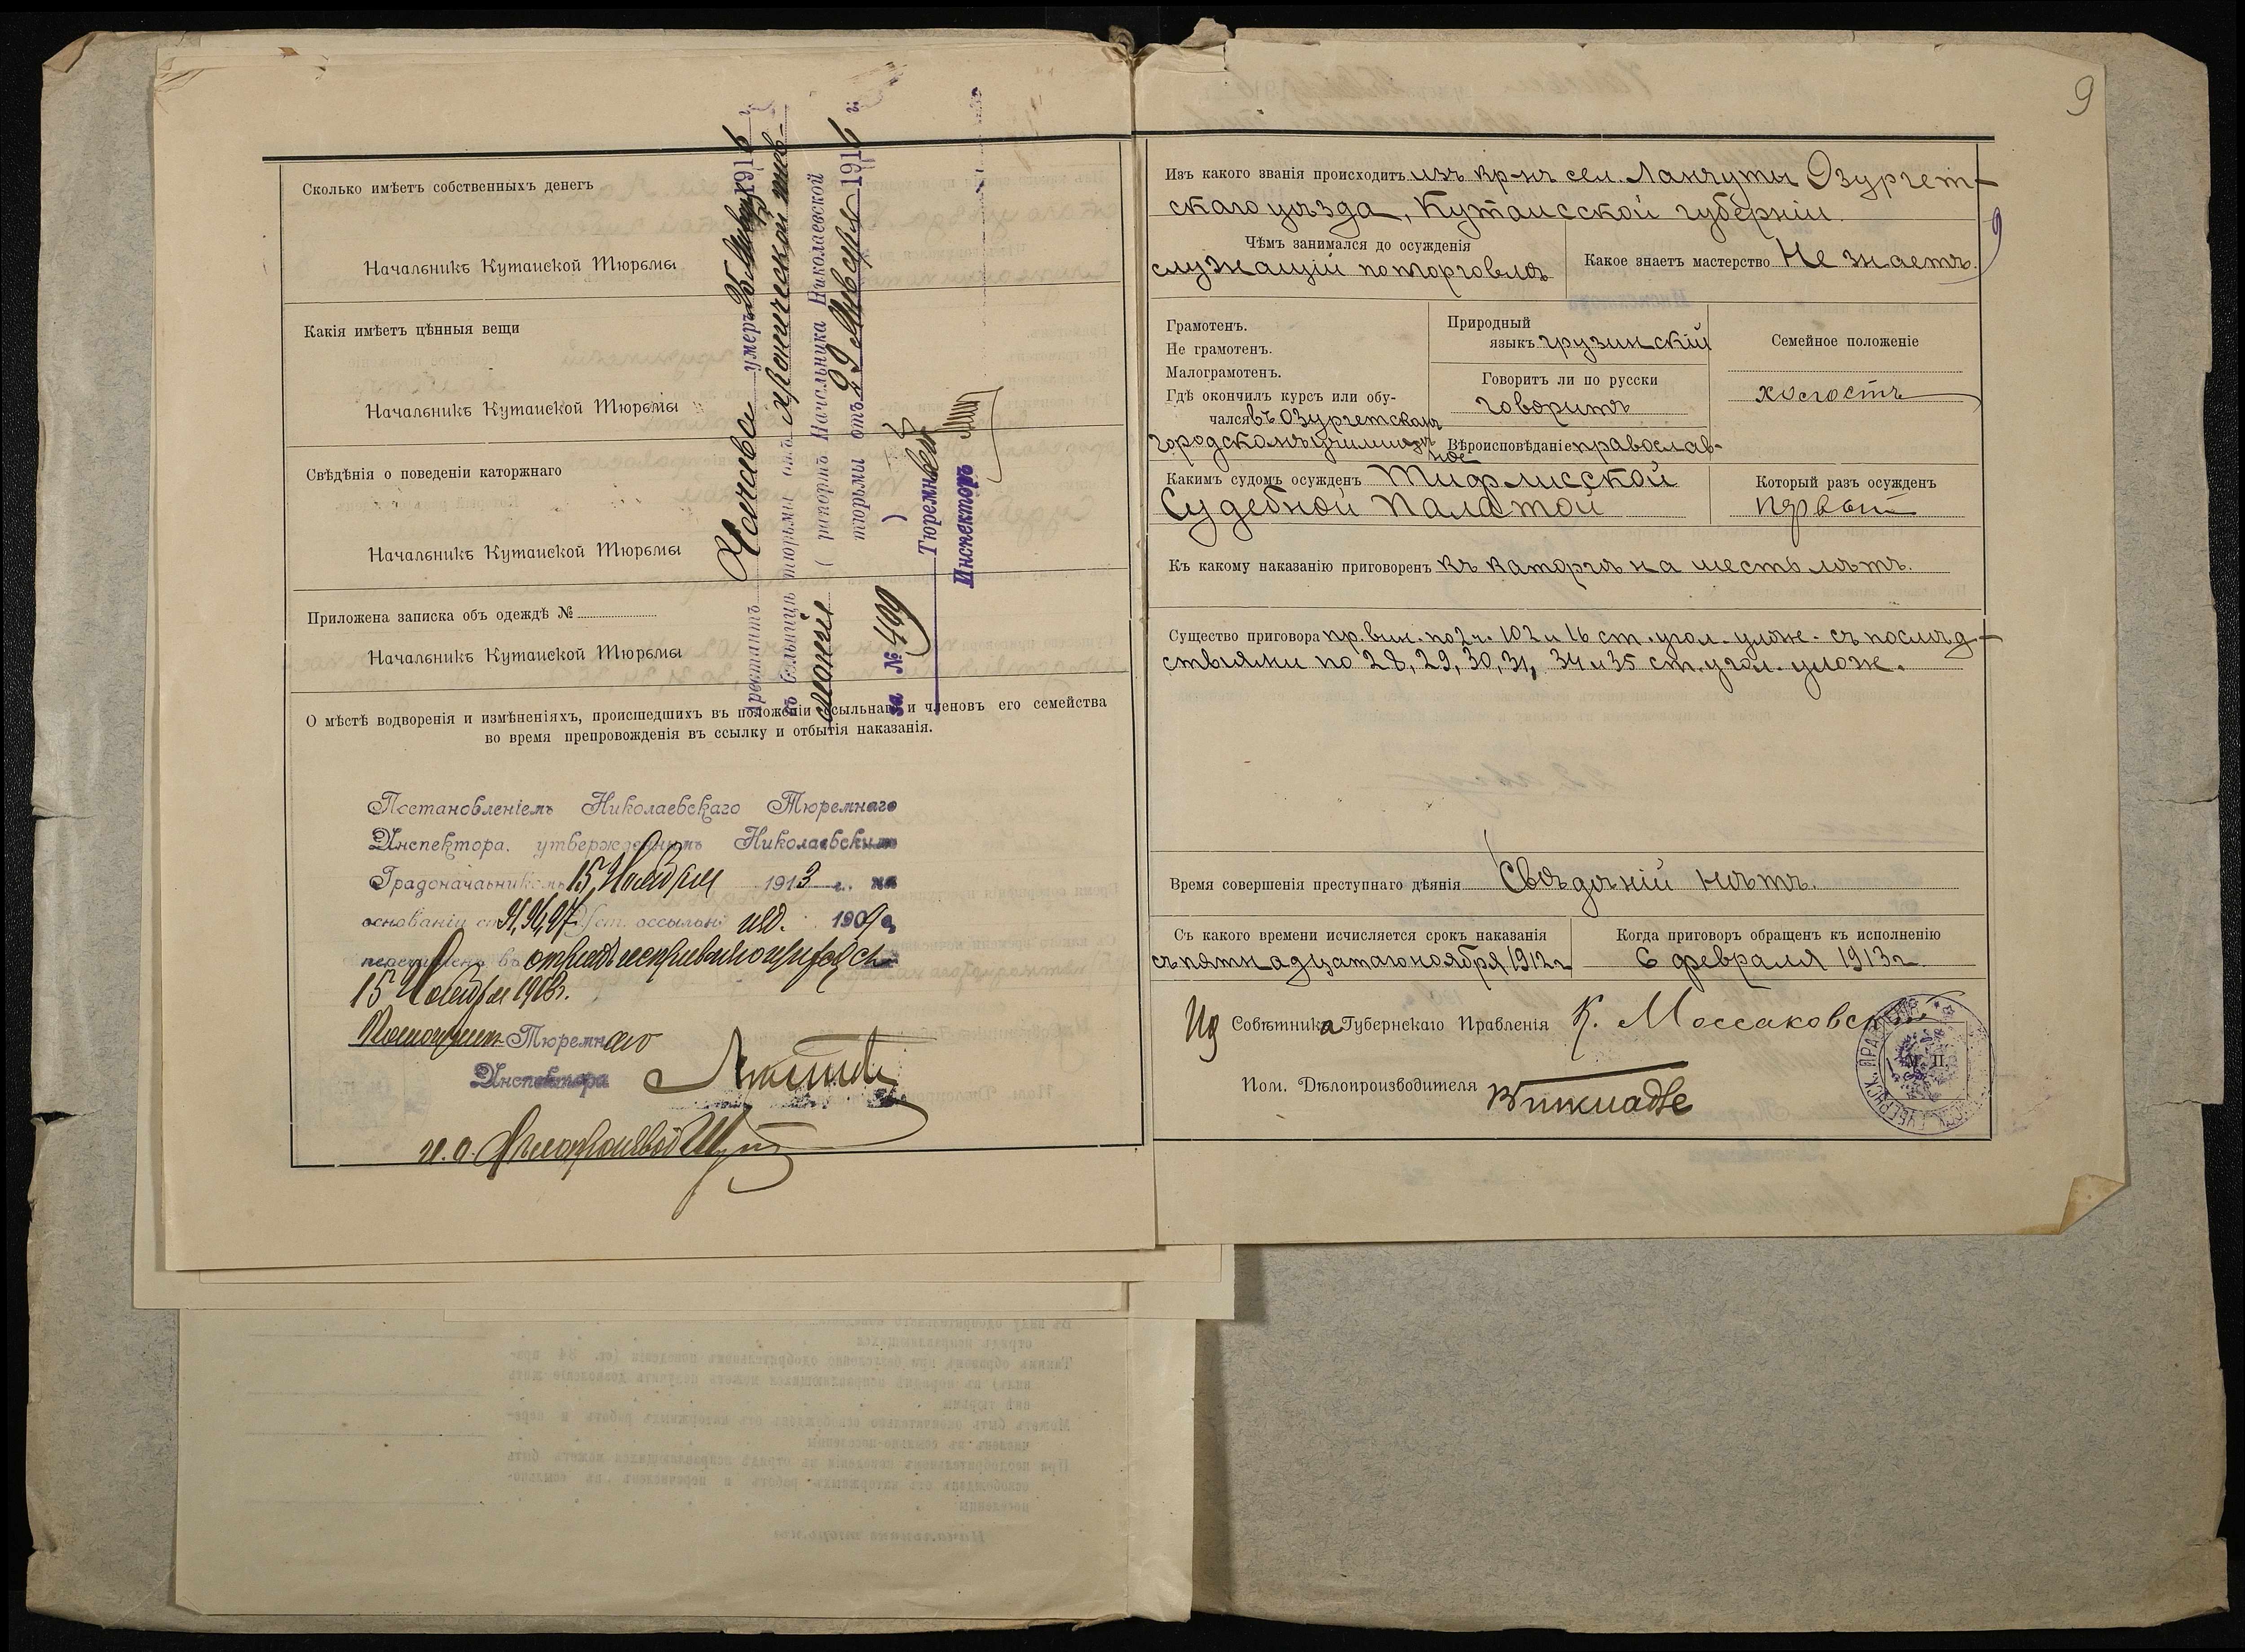 Сколько имѣетъ собственныхъ денегъ
Начальникъ Кутаиской Тюрьмы
Какія имѣетъ цѣнныя вещи
Начальникъ Кутаиской Тюрьмы
Свѣдѣнія о поведеніи каторжнаго
Начальникъ Кутаиской Тюрьмы
Приложена записка объ одеждѣ №
Начальникъ Кутаиской Тюрьмы
Арестантъ умеръ 25 Января 1916 г.
въ больницѣ тюрьмы отъ хронической пнев-
монiи ( рапортъ Начальника Николаевской
тюрьмы отъ 29 Января 1916 г.
за № 499 )
Тюремный
Инспекторъ
О мѣстѣ водворенія и измѣненіяхъ, происшедшихъ въ положеніи ссыльнаго и членовъ его семейства
во время препровожденія въ ссылку и отбытія наказанія.
Постановленіемъ Николаевскаго Тюремнаго
Инспектора, утвержденнымъ Николаевскимъ
Градоначальникомъ 15 Ноября 1913 г. на
основаніи ст. 94, 96, 97 уст. о ссыльн. изд. 1909 г.
перечисленъ въ отрядъ исправляющихся
15 Ноября 1913 г.
Помощникъ Тюремнаго
Инспектора
и. о. Дѣлопроизвод
9
Изъ какого званія происходитъ изъ кр-нъ сел. Ланчуты Озургет-
скаго уѣзда, Кутаисской губерніи.
9
Чѣмъ занимался до осужденія
служащій по торговлѣ
Какое знаетъ мастерство Не знаетъ.
Грамотенъ.
Не грамотенъ.
Малограмотенъ.
Гдѣ окончилъ курсъ или обу-
чался въ Озургетскомъ
городскомъ училищѣ
Природный
языкъ грузинскій
Говоритъ ли по русски
говоритъ
Вѣроисповѣданіе православ-
ное
Семейное положеніе
холостъ
Какимъ судомъ осужденъ Тифлисской
Судебной Палатой
Который разъ осужденъ
первый
Къ какому наказанію приговоренъ къ каторгѣ на шесть лѣтъ.
Существо приговора пр. вин. по 2 ч. 102 и 16 ст. угол. улож. съ послѣд-
ствіями по 28, 29, 30, 31, 34 и 35 ст. угол. улож.
Время совершенія преступнаго дѣянія Свѣдѣній нѣтъ.
Съ какого времени исчисляется срокъ наказанія
съ пятнадцатаго ноября 1912 г
Когда приговоръ обращенъ къ исполненію
6 февраля 1913 г.
Ид Совѣтника Губернскаго Правленія К. Моссаковскій
М. П.
Пом. Дѣлопроизводителя